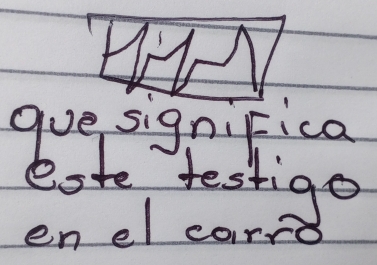 que significa
este testigo
en el carro